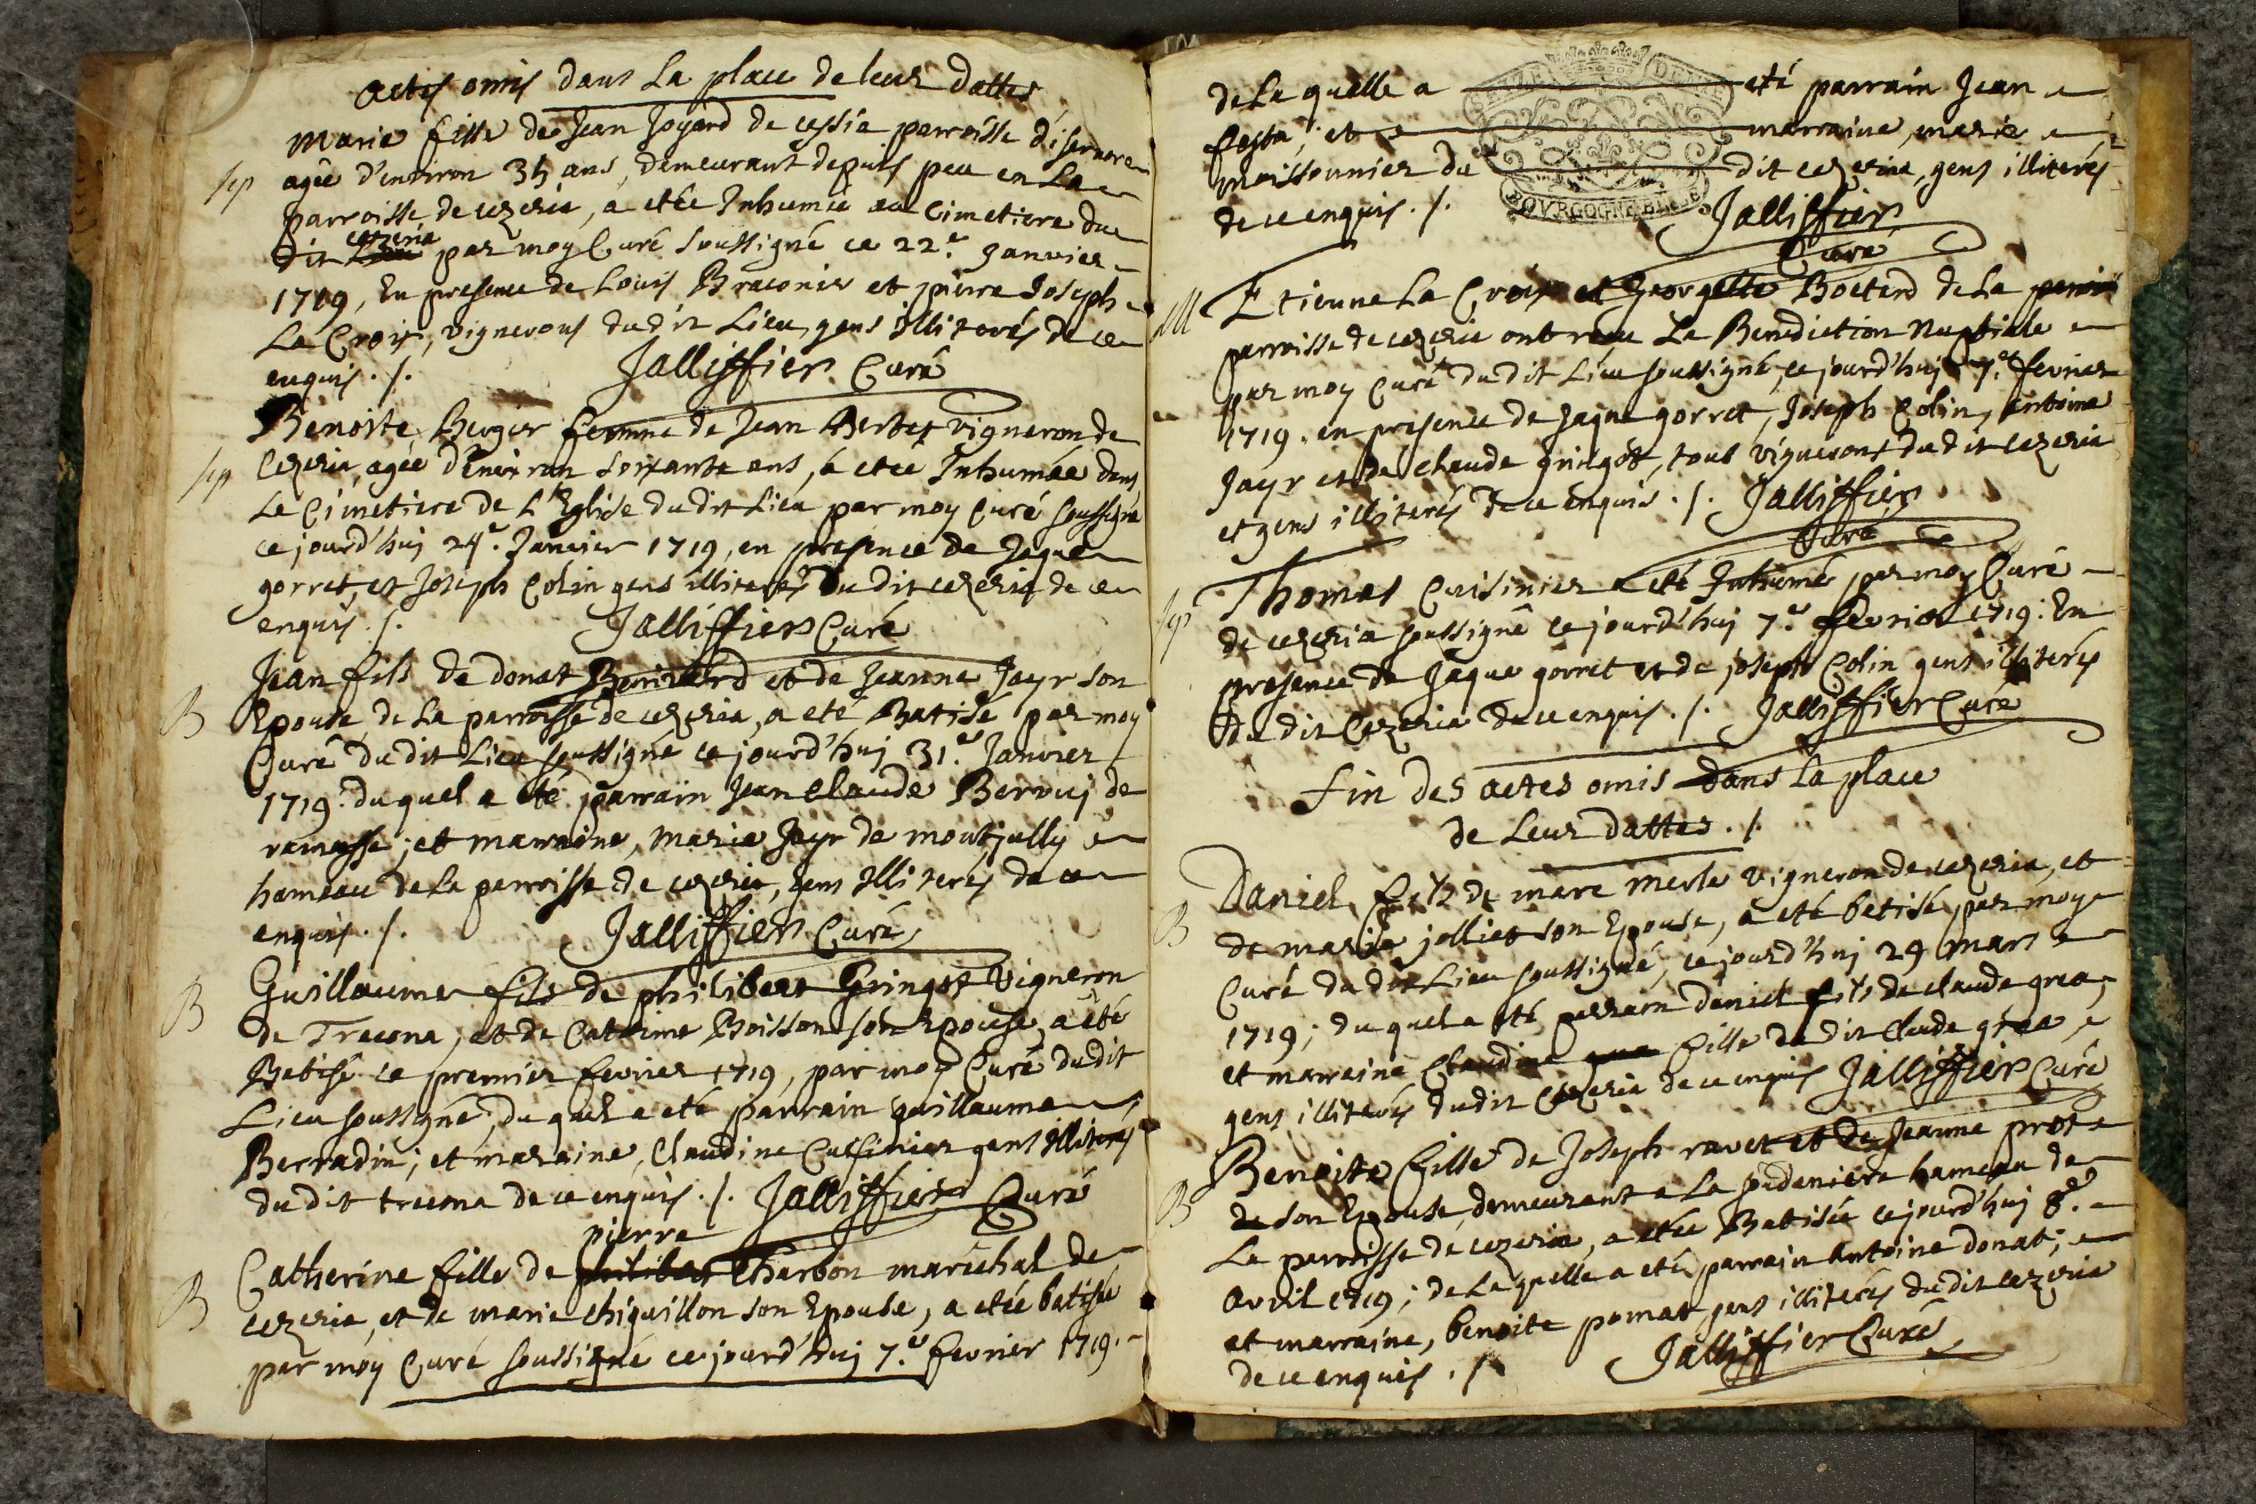 actes omis dans la place de leur dattes
Marie fille de Jean Joyard de cessia parroisse d'isernore
sep
agée d'environ 35 ans, demeurant depuis peu en la
parroisse de cezeria, a etée Inhumée au Cimetiere du
cezeria
dit Lieu par moy Curé soussigné ce 22.e Janvier
1719, En presence de Louis Braconier et pierre Joseph
La Croix, vignerons dudit Lieu, gens illiterés de ce
enquis ./. Jalliffier Curé
Benoite Burgier femme de Jean Berbet vigneron de
sep
Cezeria, agée d'environ soixante ans, a etée Inhumée dans
Le Cimetiere de L'Eglise dudit Lieu par moy Curé soussigné
ce jourd'huj 24.e Janvier 1719, en presence de Jaque
gorret, et Joseph Colin gens illiterés dudit cezeria de ce
enquis ./. Jalliffier Curé
Jean fils de donat et de Jeanne Jayr son
B
Epouse de La parroisse de cezeria, a eté Batisé par moy
Curé dudit Lieu soussigné ce jourd'huj 31.e Janvier
1719. duquel a eté parrain Jean Claude Berruj de
ramasse; et marraine, Marie Jayr de montjully
hameau de La parroisse de cezeria, gens illiterés de ce
enquis ./. Jalliffier Curé
Guillaume fils de philibert Gringot Vigneron
B
de Trecona, et de Catrime Boisson son Epouse, a eté
Batisé ce premier fevrier 1719, par moy Curé dudit
Lieu soussigné, duquel a eté parrain guillaume
Berradin; et maraine, Claudine Cussinier gens illiterés
du dit trecona de ce enquis ./. Jalliffier Curé
pierre
Catherine fille de philibert Charbon maréchal de
B
cezeria, et de marie chiguillon son Epouse, a etée batisée
par moy Curé soussigné ce jourd'huj 7.e fevrier 1719.
de Laquelle a eté parrain Jean
festa; et marraine, marie
moissonnier du dit cezeria, gens illiterés
de ce enquis ./. Jalliffier
Curé
M
Etienne La Croix et Georgette Boeterd de La
parroisse de cezeria ont reçu La Benediction Nuptiale
par moy Curé dudit Lieu soussigné, ce jourd'huj 7.e fevrier
1719. en presence de Jaque gorret, Joseph Colin, antoine
Jayr et de Claude gringot, tous vignerons dudit cezeria
et gens illiterés de ce enquis ./. Jalliffier
Curé
Thomas Cuisinier a eté Inhumé par moy Curé
sep
de cezeria soussigné ce jourd'huj 7.e fevrier 1719. En
presence de Jaque gorret et de joseph Colin gens illiterés
du dit Cezeria de ce enquis ./. Jalliffier Curé
Fin des actes omis dans la place
de Leur dattes ./.
Daniel fils de marc merle vigneron de cezeria, et
B
de marie jolliet son Epouse, a eté batisé par moy
Curé dudit Lieu soussigné, ce jourd'huj 29 mars
1719; duquel a eté parrain daniel fils de claude grea,
et marraine Claudine grea fille dudit Claude grea,
gens illiterés dudit Cezeria de ce enquis Jalliffier Curé
Benoite fille de Joseph ravet et de Jeanne prost
B
de son Epouse, demeurant a La pidaniere hameau de
La parroisse de cezeria, a etée Batisée ce jourd'huj 8.e
avril 1719; de Laquelle a eté parrain antoine donat;
et marraine, benoite pomat gens illiterés dudit cezeria
de ce enquis ./. Jalliffier Curé